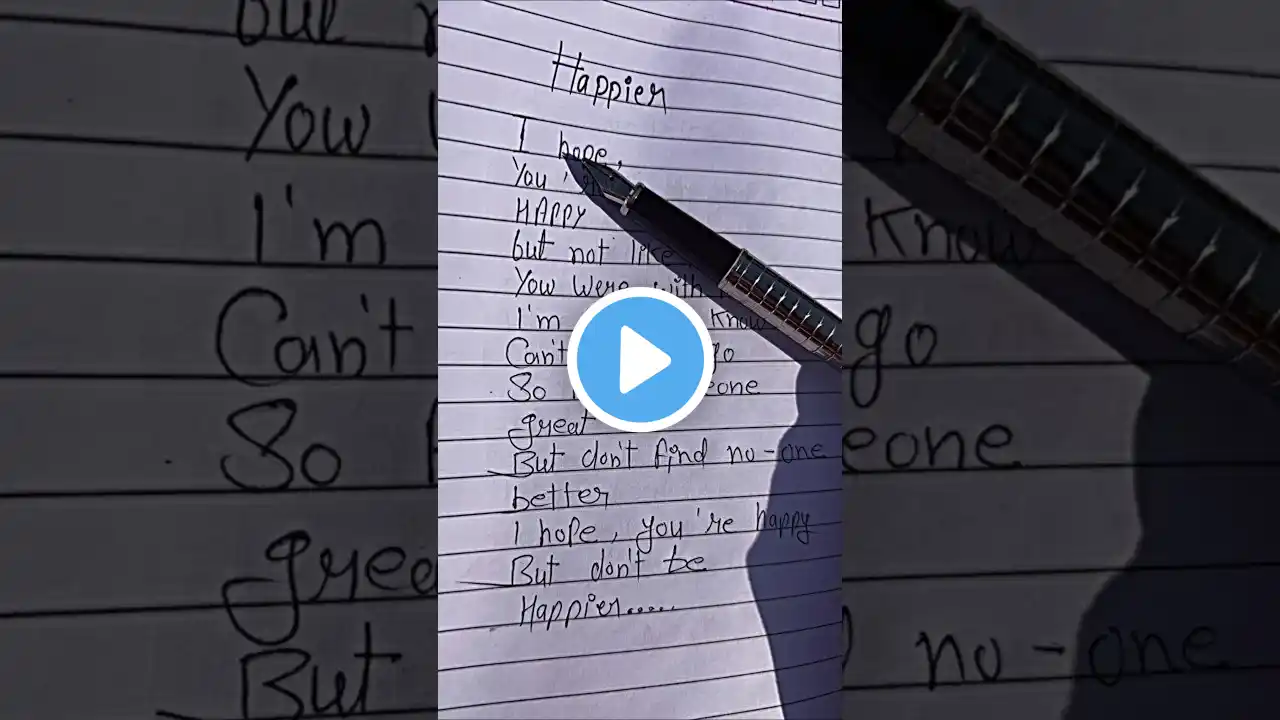 Happier
I hope,
You
HAPPY
but not like
You were with
I'm Know
Can't go
So
great
But don't find no-one
better
I hope, you're happy
But don't be
Happier.....